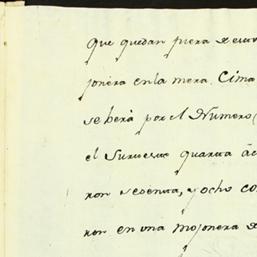 Que quedan fuera de
jonera en la mera Cima
se hera por el Numero
el Suroeste quarta
ron sesenta, y ocho co
ron en una Mojonera d